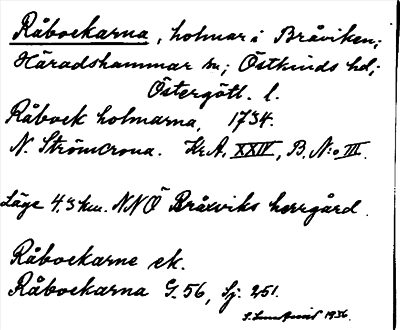 Råbockarna, holmar i Bråviken;
Häradshammar sn; Östkinds hd;
Östergötl. l.
Råbock holmarna, 1734.
N. Strömcrona. Kr.A. XXIV, B. N:o III.
Läge 4.3 km. NNÖ Bråxviks herrgård.
Råbockarne ek.
Råbockarna G. 56, Sj. 251.
1936.